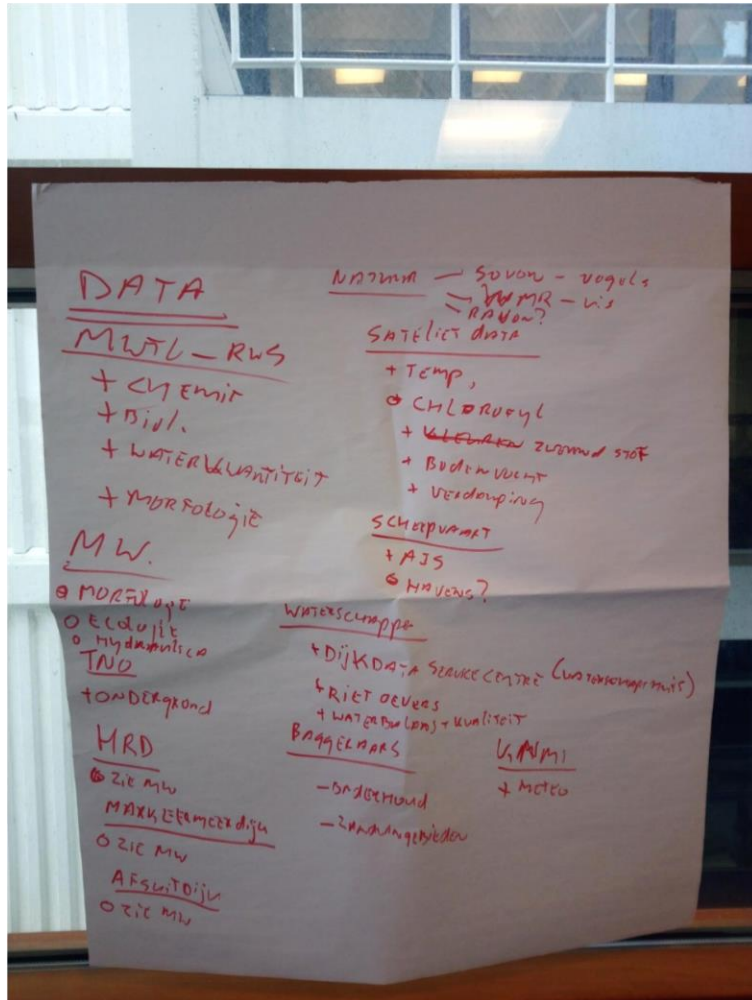 DATA
MWTL - RWS
+ CHEMIE
+ Biol.
+ WATERKWANTITEIT
+ MORFOLOGIE
MW.
o MORFOLOGIE
o ECOLOGIE
o Hydraulica
TNO
+ ONDERGROND
HRD
o ZIE MW
MARKERMEERdijk
o ZIE MW
AFSLUITDIJK
o ZIE MW
NATUUR - SOVON - vogels
= WMR - vis
= RAVON?
SATELIET DATA
+ TEMP,
o CHLOROFYL
+ ZWEVEND STOF
+ BODEMVOCHT
+ VERDAMPING
SCHEEPVAART
+ AIS
o HAVENS?
WATERSCHAPPEN
+ DIJKDATA SERVICECENTRE (WATERSCHAPSHUIS)
+ RIET OEVERS
+ WATERBALANS + KWALITEIT
BAGGERAARS
- ONDERHOUD
- ZANDWINGEBIEDEN
KNMI
+ METEO